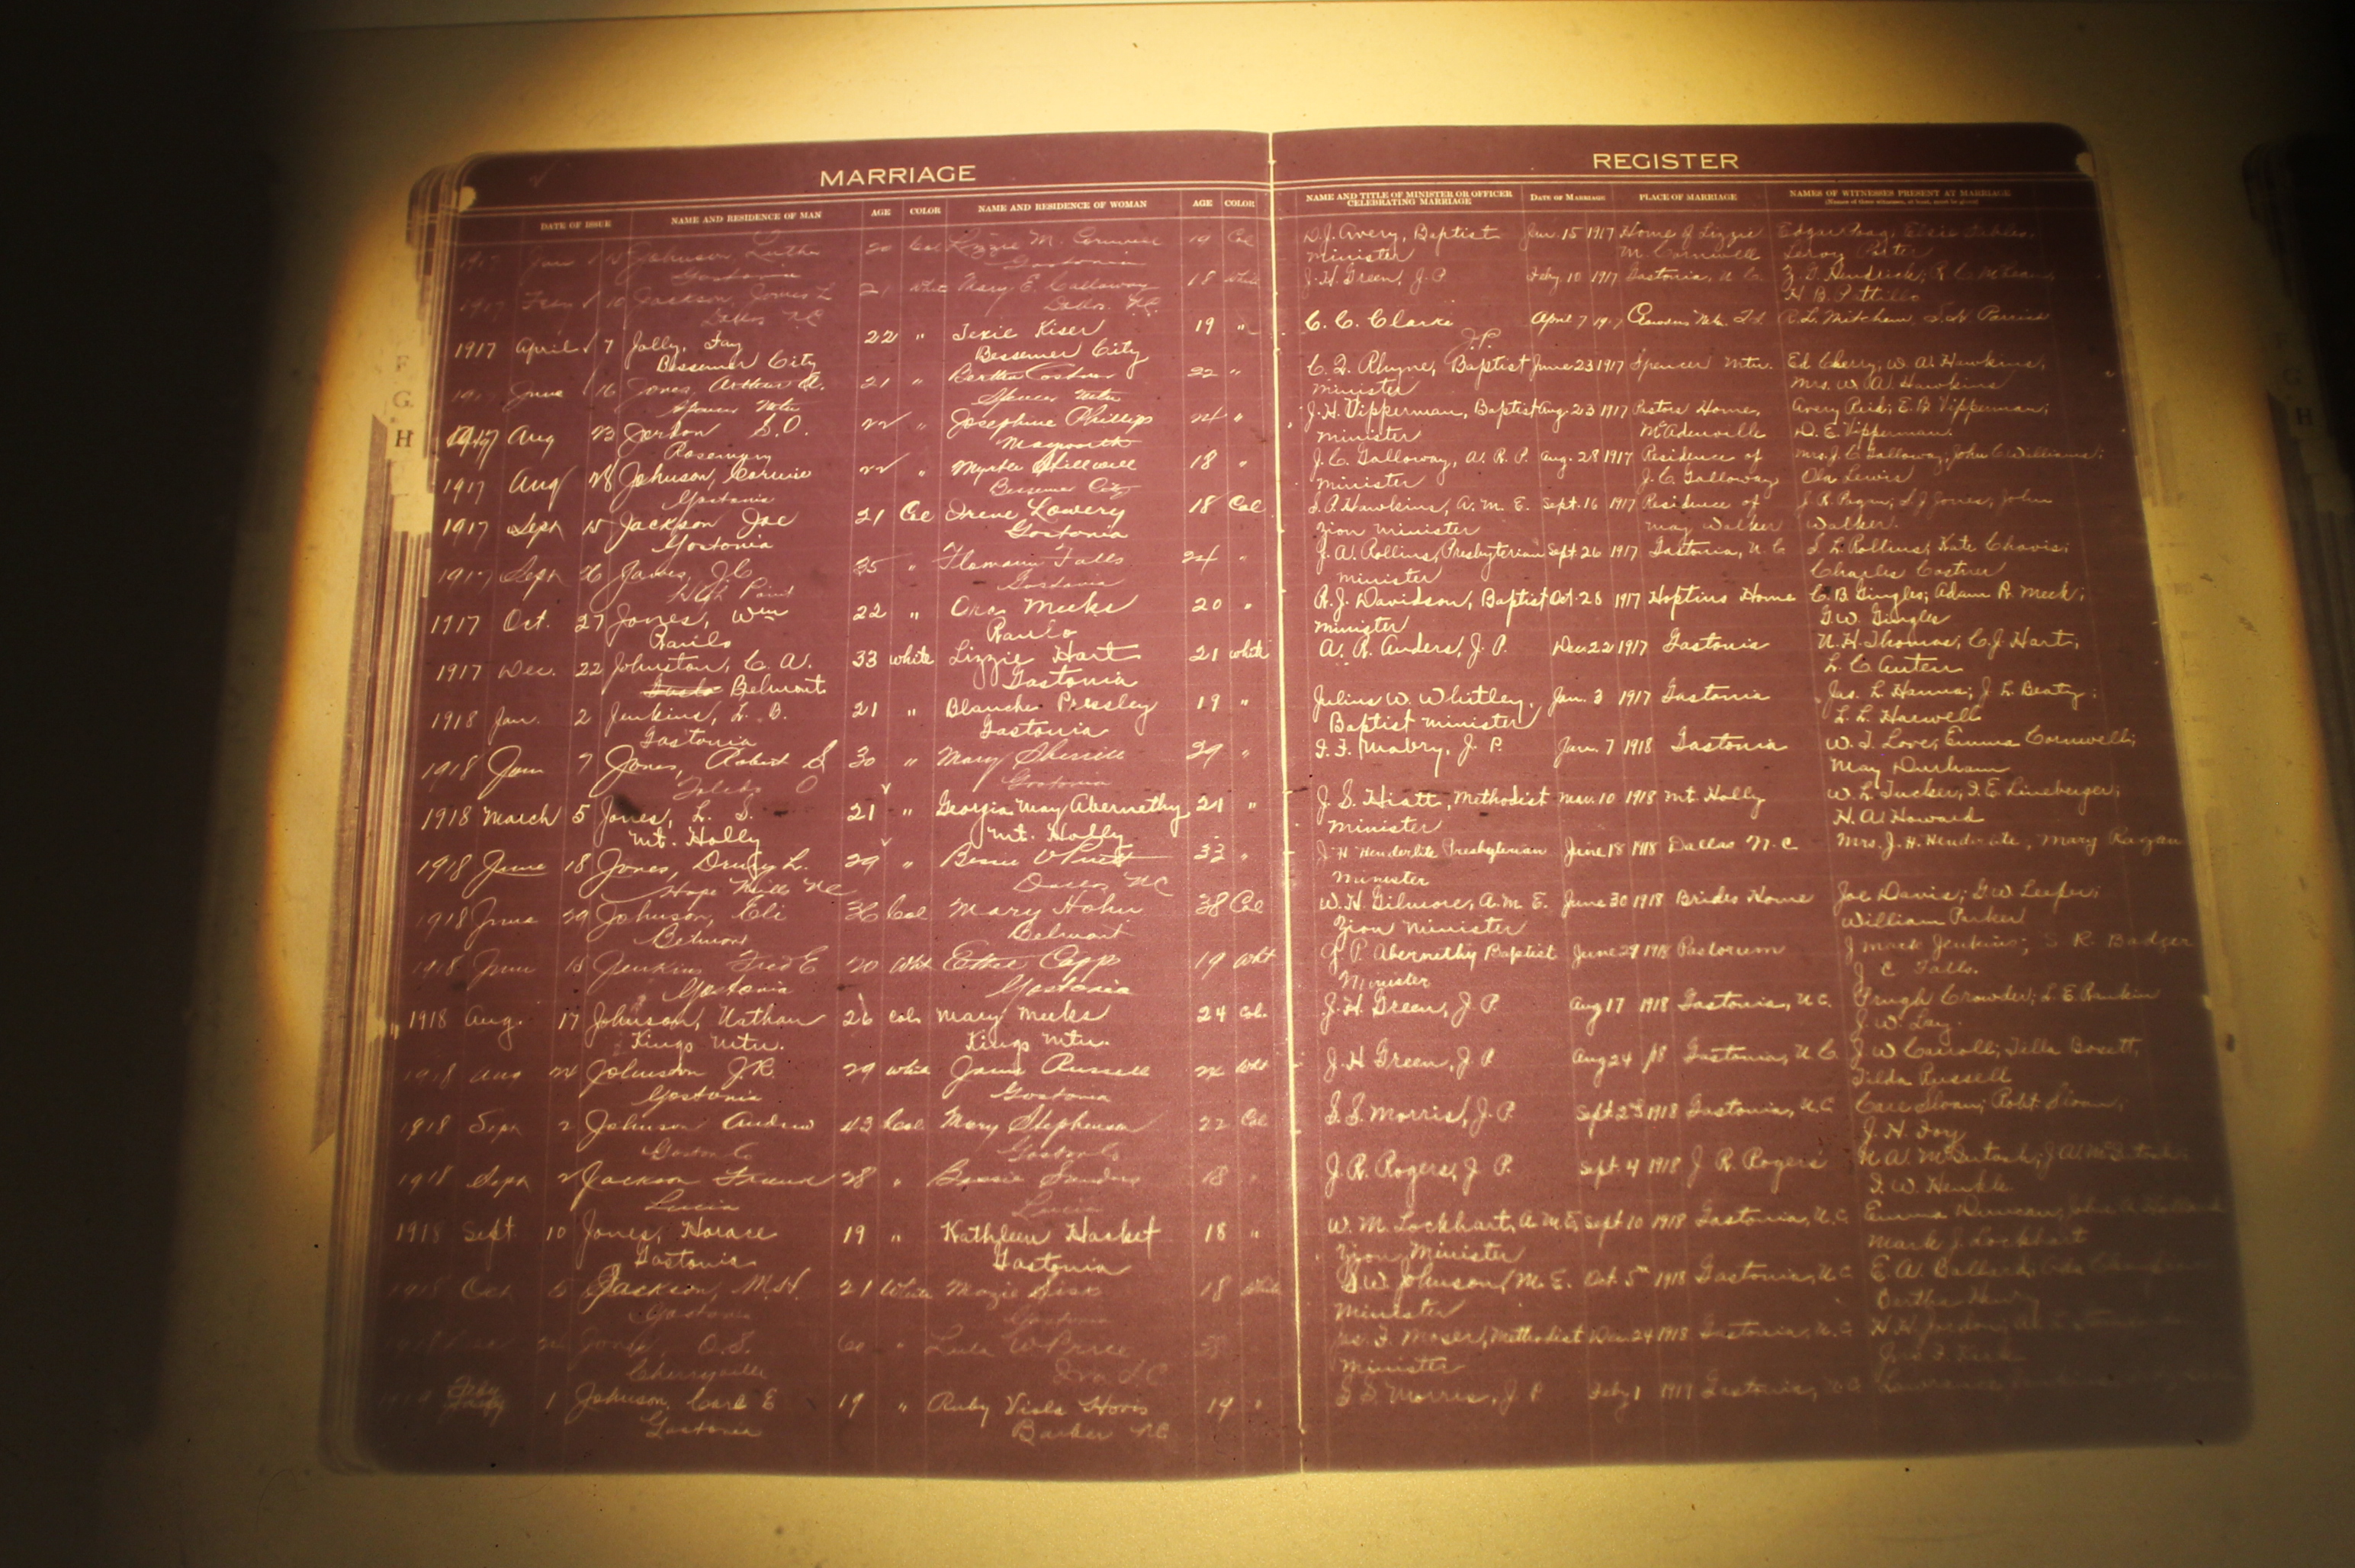 MARRIAGE
DATE OF ISSUE NAME AND RESIDENCE OF MAN AGE COLOR NAME AND RESIDENCE OF WOMAN AGE COLOR
1917 Jan 15 Johnson, Luther 20 Col Lizzie M. Cornwell 19 Col
Gastonia Gastonia
1917 Feby 10 Jackson, James L 21 White Mary E. Calloway 18 White
Dallas N.C. Dallas N.C.
1917 April 7 Jolly, Fay 22 " Texie Kiser 19 "
Bessemer City Bessemer City
June 16 Jones, Arthur 21 " Bertha Costner 22 "
Spencer Mtn Spencer Mtn
1917 Aug 23 S.O. 22 " Josephine Phillips 24 "
Rosemary Mayworth
1917 Aug 28 Johnson, 22 " Myrtle 18 "
Gastonia Bessemer City
1917 Sept 15 Jackson Joe 21 Col Irene Lowery 18 Col
Gastonia Gastonia
1917 Sept 26 James, J.C. 25 " Falls 24 "
High Point Gastonia
1917 Oct. 27 Jones, Wm 22 " Ora Meeks 20 "
Ranlo Ranlo
1917 Dec. 22 Johnston, C. A. 33 white Lizzie Hart 21 white
Belmont Gastonia
1918 Jan. 2 Jenkins, L. B. 21 " Blanche Pressley 19 "
Gastonia Gastonia
1918 Jan 7 Jones, Robert S 30 " Mary Sherrill 29 "
Toledo O Gastonia
1918 March 5 Jones, L. S. 21 " Georgia May Abernethy 21 "
Mt. Holly Mt. Holly
1918 June 18 Jones, Drury L. 29 " Bessie 33 "
Hope Mills NC Dallas, NC
1918 June 29 Johnson, Eli 36 Col Mary Hohn 38 Col
Belmont Belmont
1918 June 15 Jenkins Fred E 20 Wht Ethel Capps 19 Wht
Gastonia Gastonia
1918 Aug. 17 Johnson, Nathan 26 Col. Mary Meeks 24 Col.
Kings Mtn. Kings Mtn.
1918 Aug 24 Johnson J.R. 29 White Janie Russell 24 Wht
Gastonia Gastonia
1918 Sept 2 Johnson Andrew 43 Col Mary Stephenson 22 Col
Gaston Co Gaston Co
1918 Sept 2 Jackson 28 " Bessie Sanders 18 "
Lucia Lucia
1918 Sept. 10 Jones, Horace 19 " Kathleen Hasket 18 "
Gastonia Gastonia
1918 Oct 5 Jackson, M.H. 21 White Mazie Sisk 18 White
Gastonia Gastonia
24 Jones, O.S. 60 " Lula W Price
Cherryville Iva S.C
Feby 1 Johnson, Carl E 19 " Ruby Viola Hovis 19 "
Gastonia Barker NC
REGISTER
NAME AND TITLE OF MINISTER OR OFFICER CELEBRATING MARRIAGE DATE OF MARRIAGE PLACE OF MARRIAGE NAMES OF WITNESSES PRESENT AT MARRIAGE
(Names of three witnesses, at least, must be given)
D. J. Avery, Baptist Jan. 15 1917 Home of Lizzie Edgar Poag, Elsie
Minister M. Cornwell Leroy Porter
J. H. Green, J. P. Feby. 10 1917 Gastonia, N. C. Z. T. Hendrick; R. C. McLean,
H. B. Pattillo
C. C. Clarke J.P. April 7 1917 Crowders Mtn. R. L. Mitchem,
C. L. Rhyne, Baptist June 23 1917 Spencer Mtn. Ed Cherry; W. A. Hawkins,
Minister Mrs. W. A. Hawkins
J. H. Vipperman, Baptist Aug. 23 1917 Pastors Home, Avery Reid; E. B. Vipperman;
Minister McAdenville D. E. Vipperman.
J. C. Galloway, A. R. P. Aug. 28 1917 Residence of Mrs. J. C. Galloway, John C Williams;
Minister J. C. Galloway Ola Lewis
S. P. Hawkins, A. M. E. Sept. 16 1917 Residence of J. R. Pagan; S J Jones, John
Zion Minister May Walker Walker.
J. A. Rollins, Presbyterian Sept 26 1917 Gastonia, N. C S. L. Rollins; Kate Chavis;
Minister Charles Costner
R. J. Davidson, Baptist Oct. 28 1917 Hoptins Home C. B Gingles; Adam R. Meek;
Minister G. W. Gingles
A. R. Anders, J. P. Dec. 22 1917 Gastonia N. H. Thomas, C. J. Hart,
L. C Auten
Julius W. Whitley, Jan. 3 1917 Gastonia Jas. L. Hanna; J. L. Beaty;
Baptist Minister L. L. Harwell
F. F. Mabry, J. P. Jan. 7 1918 Gastonia W. T. Love; Emma Cornwell;
May Durham
J. S. Hiatt, Methodist Mar. 10 1918 Mt Holly W. L. Tucker, F. E. Lineberger;
Minister H. A. Howard
J H Henderlite Presbyterian June 18 1918 Dallas N. C Mrs. J. H. Henderlite, Mary Ragan
Minister
W. H. Gilmore, A. M. E. June 30 1918 Brides Home Joe Davis; G. W. Leeper;
Zion Minister William Parker
J. P. Abernethy Baptist June 29 1918 Pastorium J Mack Jenkins; S. R. Badger
Minister J C Falls.
J. H. Green, J. P. Aug 17 1918 Gastonia, N.C. Pugh Crowder; L. E. Rankin
J. W. Lay.
J. H Green, J. P Aug 24 18 Gastonia, N. C J W Carroll; Tilla
Tilda Russell
S. S. Morris, J. P. Sept 2nd 1918 Gastonia, N.C. Sloan; Robt. Sloan;
J. H. Foy
J. R. Rogers, J P. Sept. 4 1918 J R Rogers N A. McIntosh; J A. McIntosh;
F. W. Henkle
W. M. Lockhart, A. M. E. Sept 10 1918 Gastonia, N. C Emma Duncan, John A Holland
Zion, Minister Mark J. Lockhart
W. Johnson, M. E. Oct. 5th 1918 Gastonia, N. C E. A. Ballard,
Minister Bertha Henry
Jas. F. Moser, Methodist Dec. 24 1918 Gastonia, N. C H. H. Jordan;
Minister Jno. F.
S. S. Morris, J. P Feby 1 1919 Gastonia, N.C. Lawrence